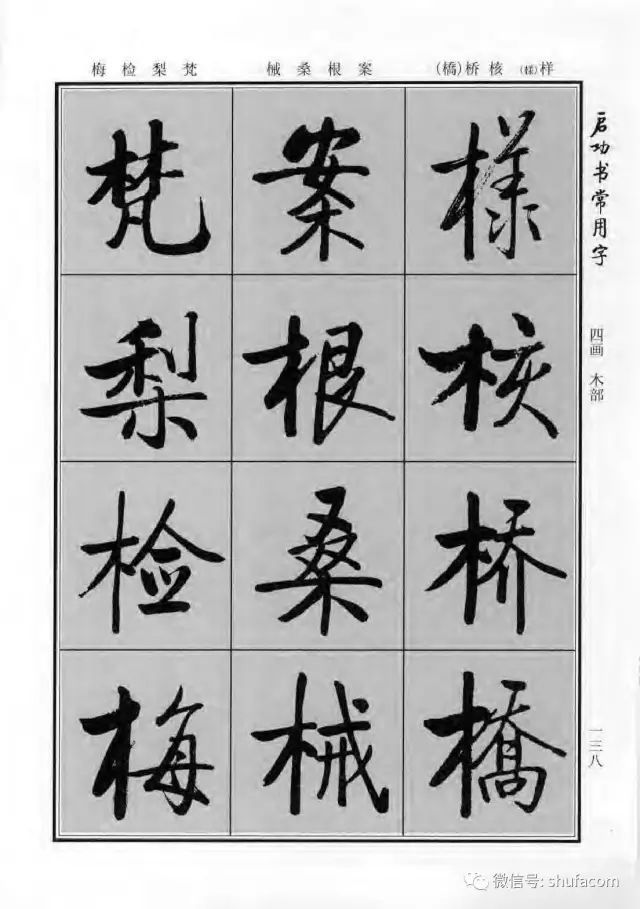 梅检梨梵 械桑根案 (橋)桥核(樣)样
启功书常用字
四画 木部
一三八
樣核桥橋
案根桑械
梵梨检梅
微信号: shufacom